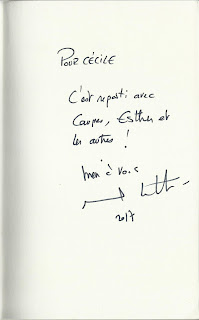 POUR CÉCILE
C'est reparti avec
Camper, Esther et
les autres !
bien à vous
2017